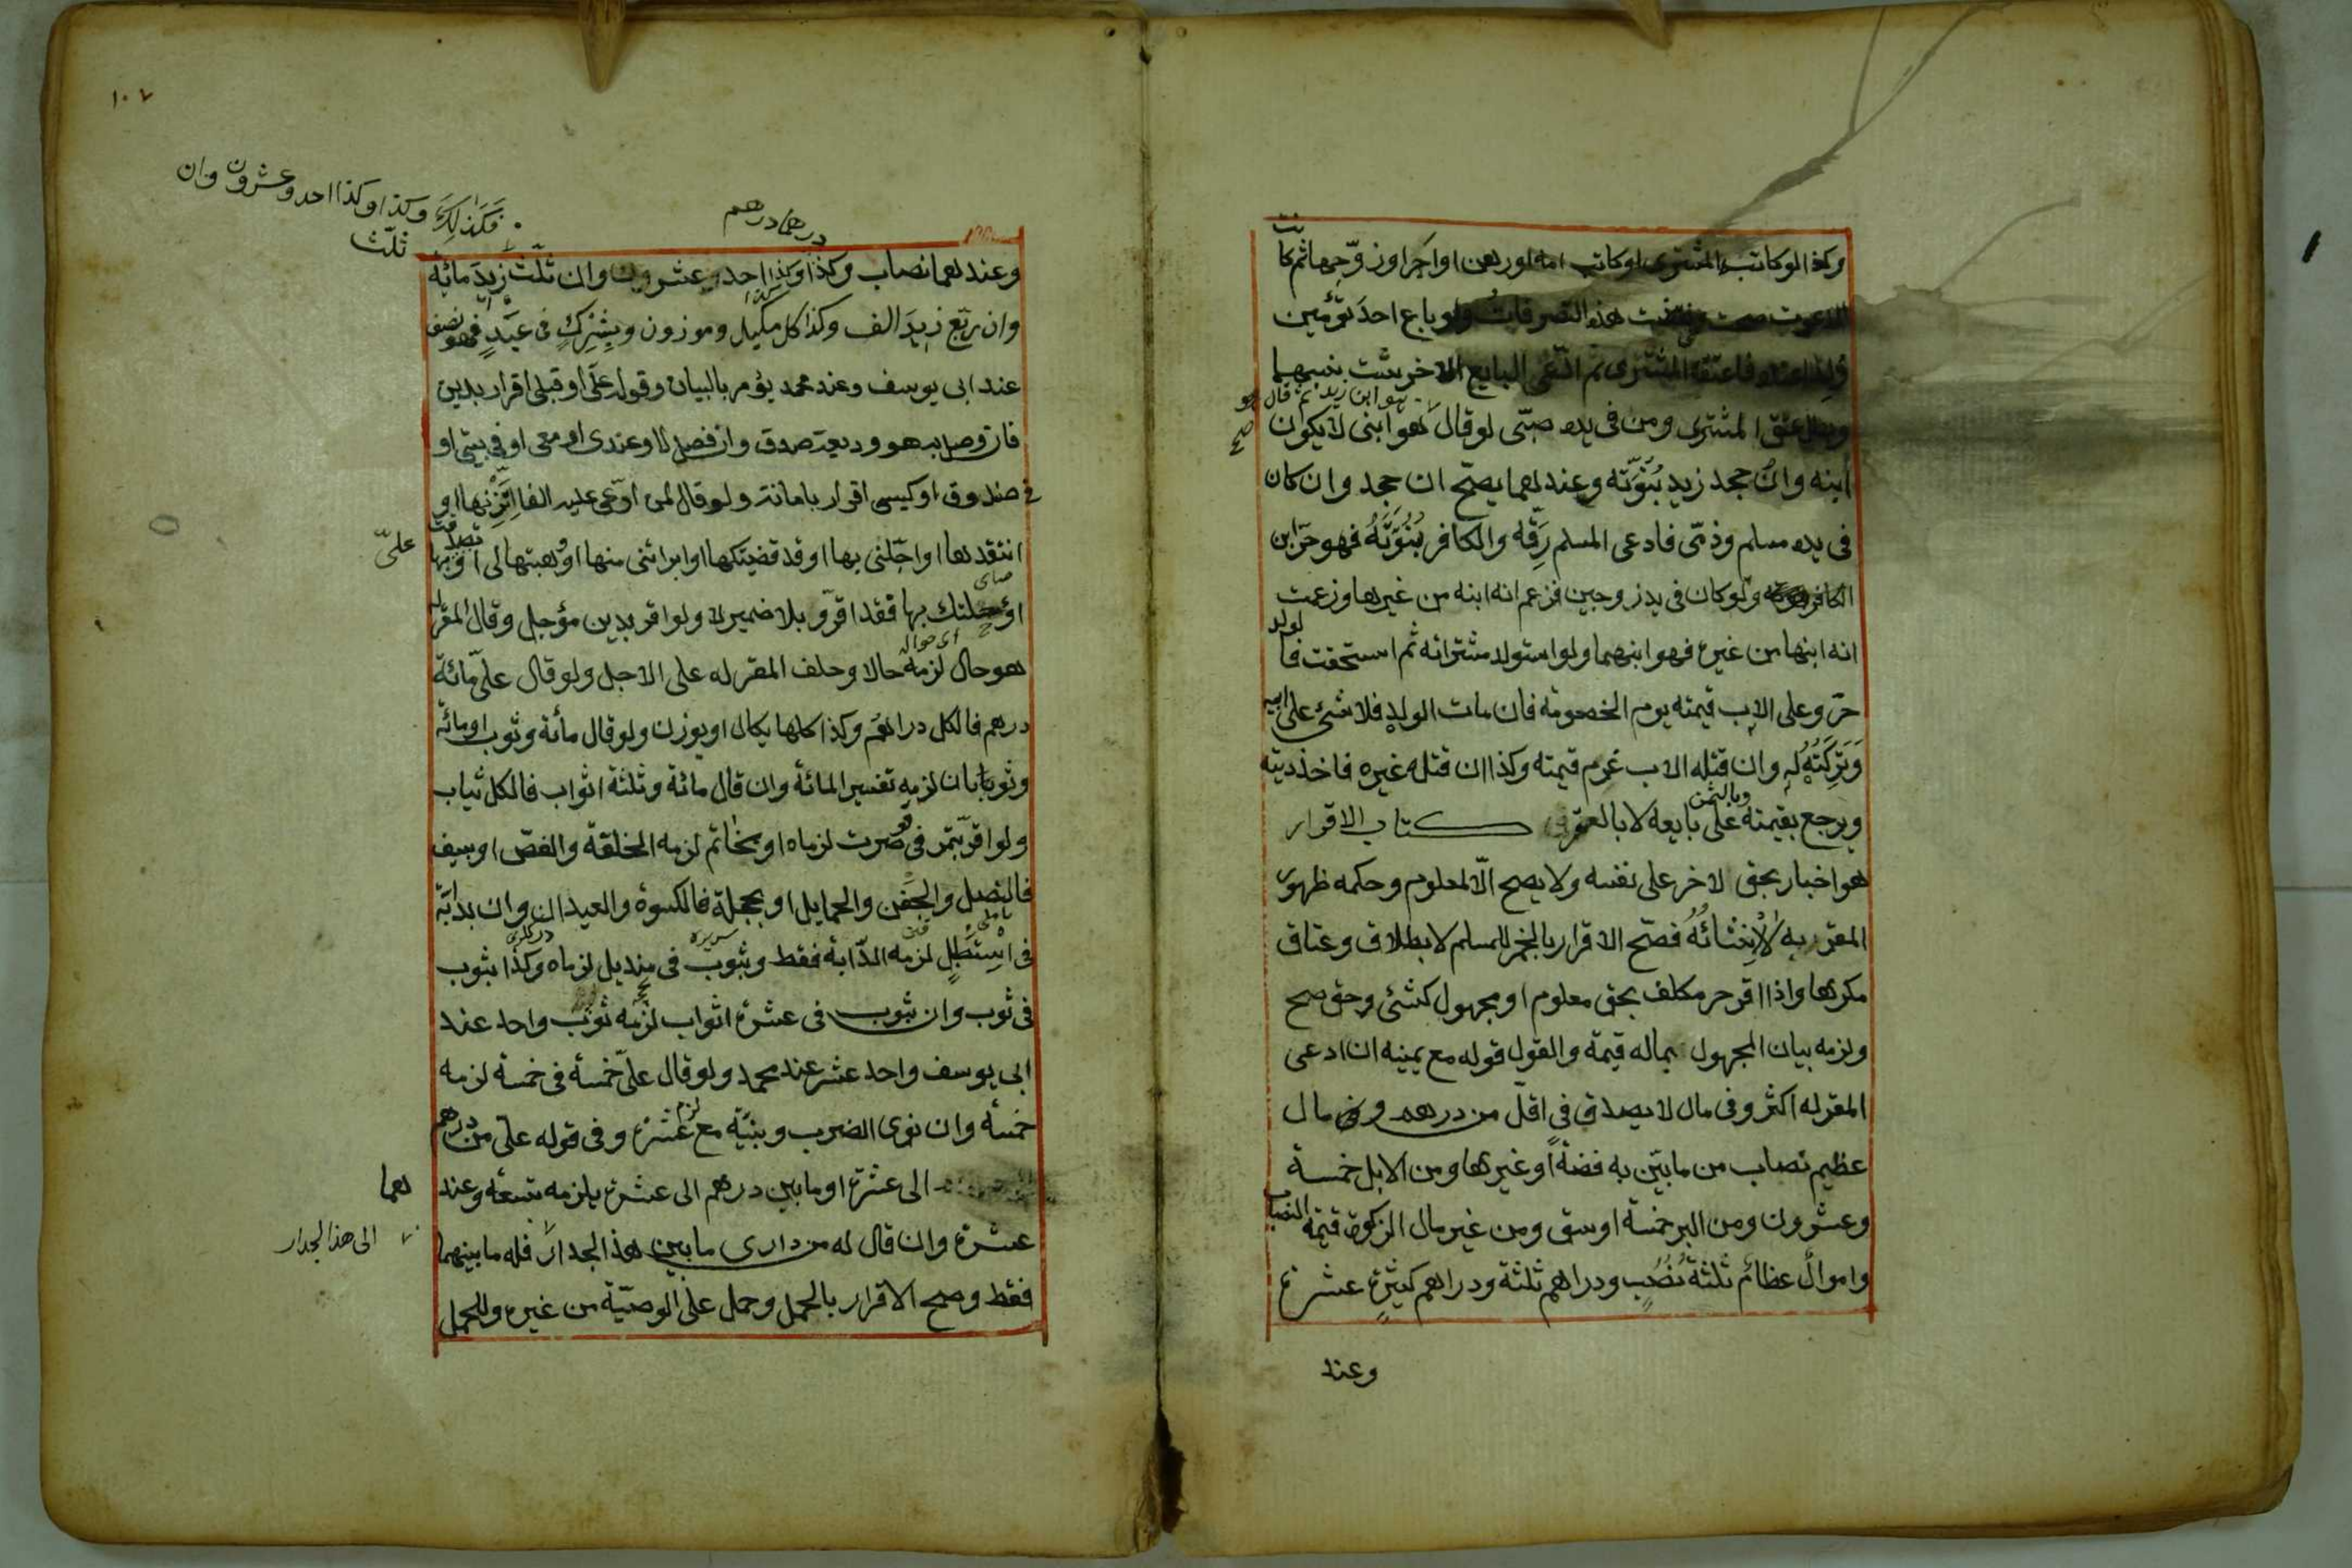 وكذا لو كاتب المشترى او كاتب امه او رهن او اجر او زوجها ثم كانت
الدعوت صحت ونقضت هذه التصرفات ولو باع احد توأمين
ولدا عنده فاعتقه المشترى ثم ادّعى البايع الاخر ثبت نسبهما
وبطل عتق المشترى ومن فى يده صبّى لو قال هو ابن زيد ثم قال هو ابنى لا يكون
ابنه وان جحد زيد بُنُوَّتَه وعندهما يصحّ ان جحد وان كان
فى يد مسلم وذمّى فادعى المسلم رِقَّه والكافر بُنُوَّتَهُ فهو حرّ ابن
الكافر ولو كان فى يد زوجين فزعم انه ابنه من غيرها وزعمت
انه ابنها من غيره فهو ابنهما ولو استولد مشتراته ثم استحقت فالولد
حرّ وعلى الاب قيمته يوم الخصومة فان مات الولد فلا شئ على ابيه
وَتَرِكَتُهُ لَهِ وان قتله الاب غرم قيمته وكذا ان قتله غيره فاخذ ديته
ويرجع بقيمته وبالثمن على بايعه لا بالعقر كتاب الاقرار
هو اخبار بحق لاخر على نفسه ولا يصح الّا لمعلوم وحكمه ظهور
المقرّ به لاَ اِنْشائُهُ فصحّ الاقرار بالخمر للمسلم لا بطلاق وعتاق
مكرها واذا اقر حر مكلف بحق معلوم او مجهول كشئ وحق صح
ولزمه بيان المجهول بماله قيمة والقول قوله مع يمينه ان ادعى
المقر له اكثر وفى مال لا يصدق فى اقلّ من درهم وفى مال
عظيم نصاب من ما بيّن به فضة او غيرها ومن الابل خمسة
وعشرون ومن البر خمسة اوسق ومن غير مال الزكوة قيمة النصاب
واموال عظائم ثلثة نُصُبٍ ودراهم ثلثة ودراهم كثيرةٍ عشرة
وعند
١٠٧
فَكَذلِكَ وكذا وكذا احد وعشرون وان
ثلّث
درهما درهم
وعندهما نصاب وكذا وكذا احد وعشرون وان ثلّث زيدَ مائة
وان ربّع زيدَ الف وكذا كل مكيل وموزون وبِشِرْكٍ فى عَبْدٍ فهو نصف
عند ابى يوسف وعند محمد يؤمر بالبيان وقوله علىّ او قبلى اقرار بدين
فان وصل به هو وديعة صدق وان فصل لا وعندى او معى او فى بيتى او
فى صندوق او كيسى اقرار بامانة ولو قال لمن ادّعى عليه الفا اِتَّزِنْها او
انتقدها او اجّلنى بها او قد قضيتكها او ابرائتنى منها او وهبتها لى او تصدقت بها
علىّ
او احلتك بها فقد اقرّ و بلا ضمير لا ولو اقر بدين مؤجل وقال المقر له
هو حال لزمه حالا وحلف المقر له على الاجل ولو قال علىّ مائة
درهم فالكل دراهم وكذا كلما يكال او يوزن ولو قال مائة وثوب او مائة
وثوبان لزمه تفسير المائة وان قال مائة وثلثة اثواب فالكل ثياب
ولو اقرّ بتمر فى صرت لزماه او بخاتم لزمه الحلقة والفصّ او سيف
فالنصل والجَفْن والحمايل او بحجلة فالكسوة والعيدان وان بدابّة
فى اِسْتَطْبَلٍ لزمه الدّابة فقط وبثوب فى منديل لزماه وكذا بثوب
فى ثوب وان بثوب فى عشرة اثواب لزمه ثوب واحد عند
ابى يوسف واحد عشر عند محمد ولو قال علىّ خمسة فى خمسة لزمه
خمسة وان نوى الضرب وبنيّة مع لزم عشرة وفى قوله على من درهم
الى عشرة او ما بين درهم الى عشرة يلزمه تسعة وعندهما
عشرة وان قال له من دارى ما بين هذ الجدار فله ما بينهما
الى هذ الجدار
فقط وصح الاقرار بالحمل وحمل على الوصيّة من غيره وللحمل